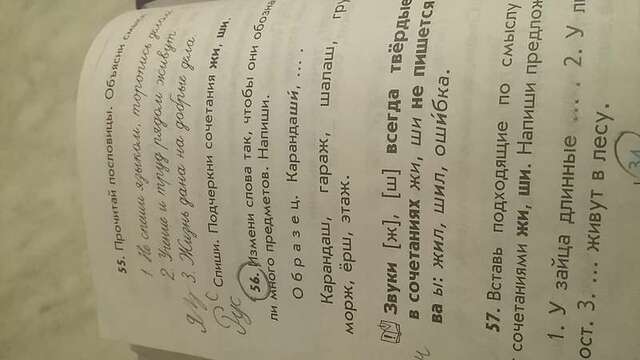 55. Прочитай пословицы. Объясни
1. Не спеши языком, торопись делом.
2. Учение и труд рядом живут.
3. Жизнь дана на добрые дела.
Спиши. Подчеркни сочетания жи, ши.
Рус
56. Измени слова так, чтобы они обозна
ли много предметов. Напиши.
Образец. Карандаши́, ... .
Карандаш, гараж, шалаш, гру
морж, ёрш, этаж.
Звуки [ж], [ш] всегда твёрдые
в сочетаниях жи, ши не пишется
ва ы: жил, шил, оши́бка.
57. Вставь подходящие по смыслу
сочетаниями жи, ши. Напиши предлож
1. У зайца длинные ... . 2. У л
ост. 3. ... живут в лесу.
34